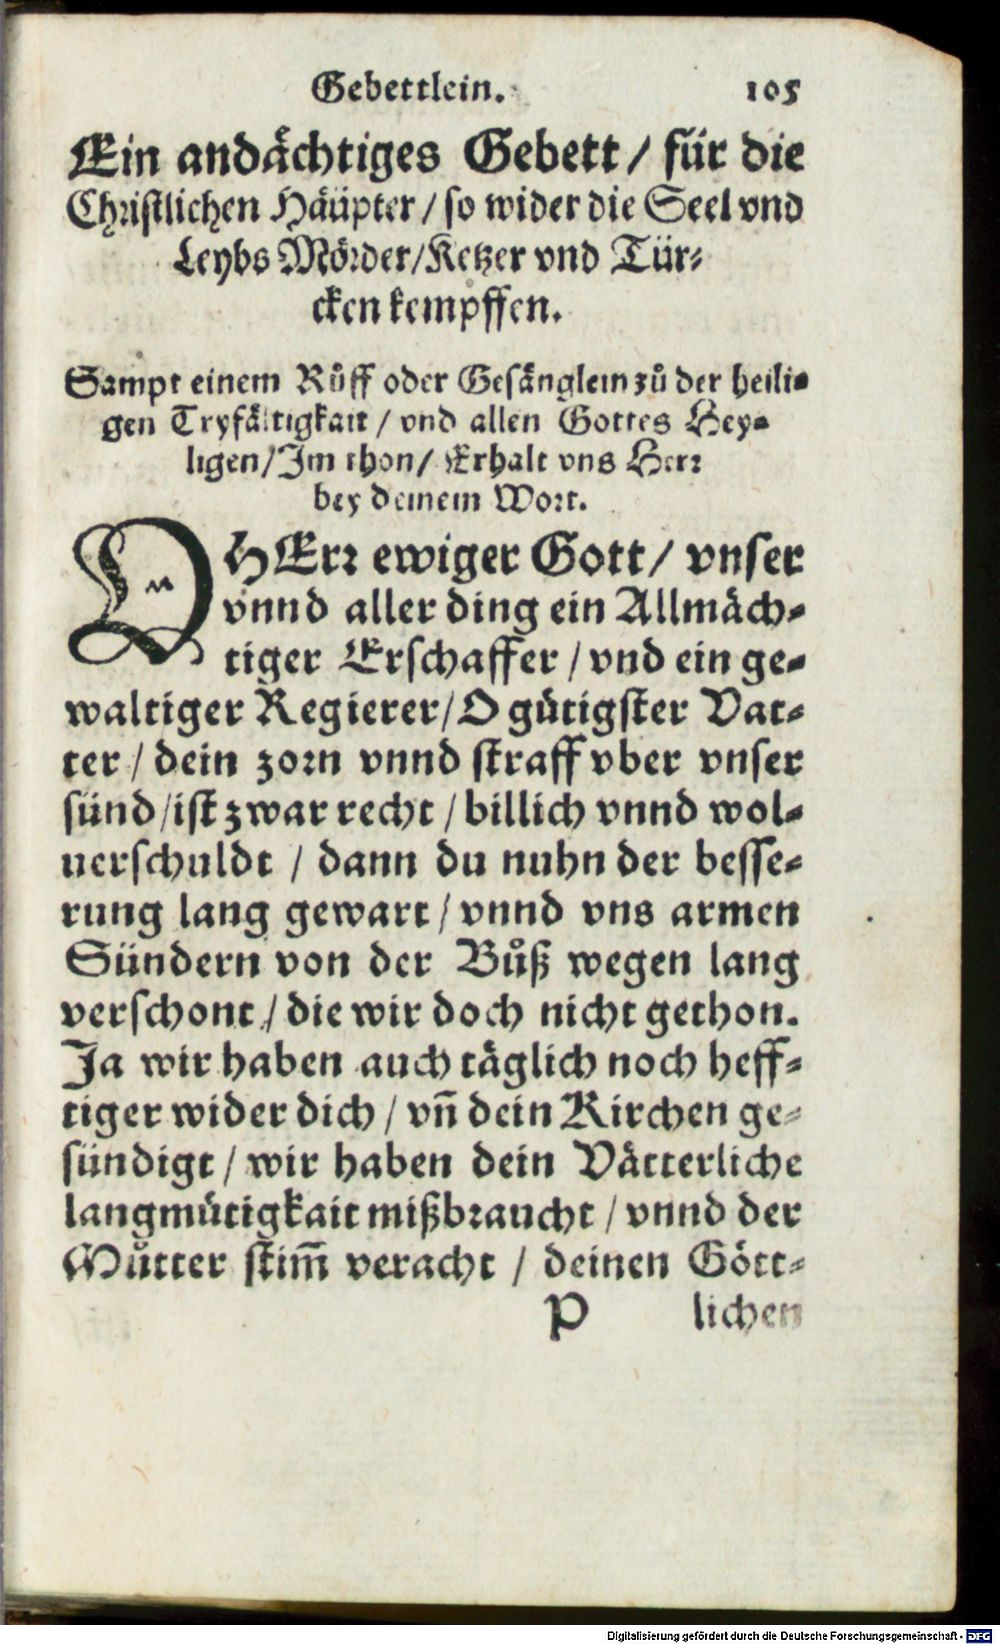 Gebettlein. 105
Ein andächtiges Gebett / für die
Christlichen Häupter / so wider die Seel vnd
Leybs Mörder / Ketzer vnd Tür⸗
cken kempffen.
Sampt einem Růff oder Gesänglein zů der heili⸗
gen Tryfältigkait / vnd allen Gottes Hey⸗
ligen / Im thon / Erhalt vns Herr
bey deinem Wort.
O HErr ewiger Gott / vnser
vnnd aller ding ein Allmäch⸗
tiger Erschaffer / vnd ein ge⸗
waltiger Regierer / O gütigster Vat⸗
ter / dein zorn vnnd straff vber vnser
sünd / ist zwar recht / billich vnnd wol⸗
uerschuldt / dann du nuhn der besse⸗
rung lang gewart / vnnd vns armen
Sündern von der Bůß wegen lang
verschont / die wir doch nicht gethon.
Ja wir haben auch täglich noch heff⸗
tiger wider dich / vñ dein Kirchen ge⸗
sündigt / wir haben dein Vätterliche
langmütigkait mißbraucht / vnnd der
Můtter stim̃ veracht / deinen Gött⸗
P lichen
Digitalisierung gefördert durch die Deutsche Forschungsgemeinschaft - DFG